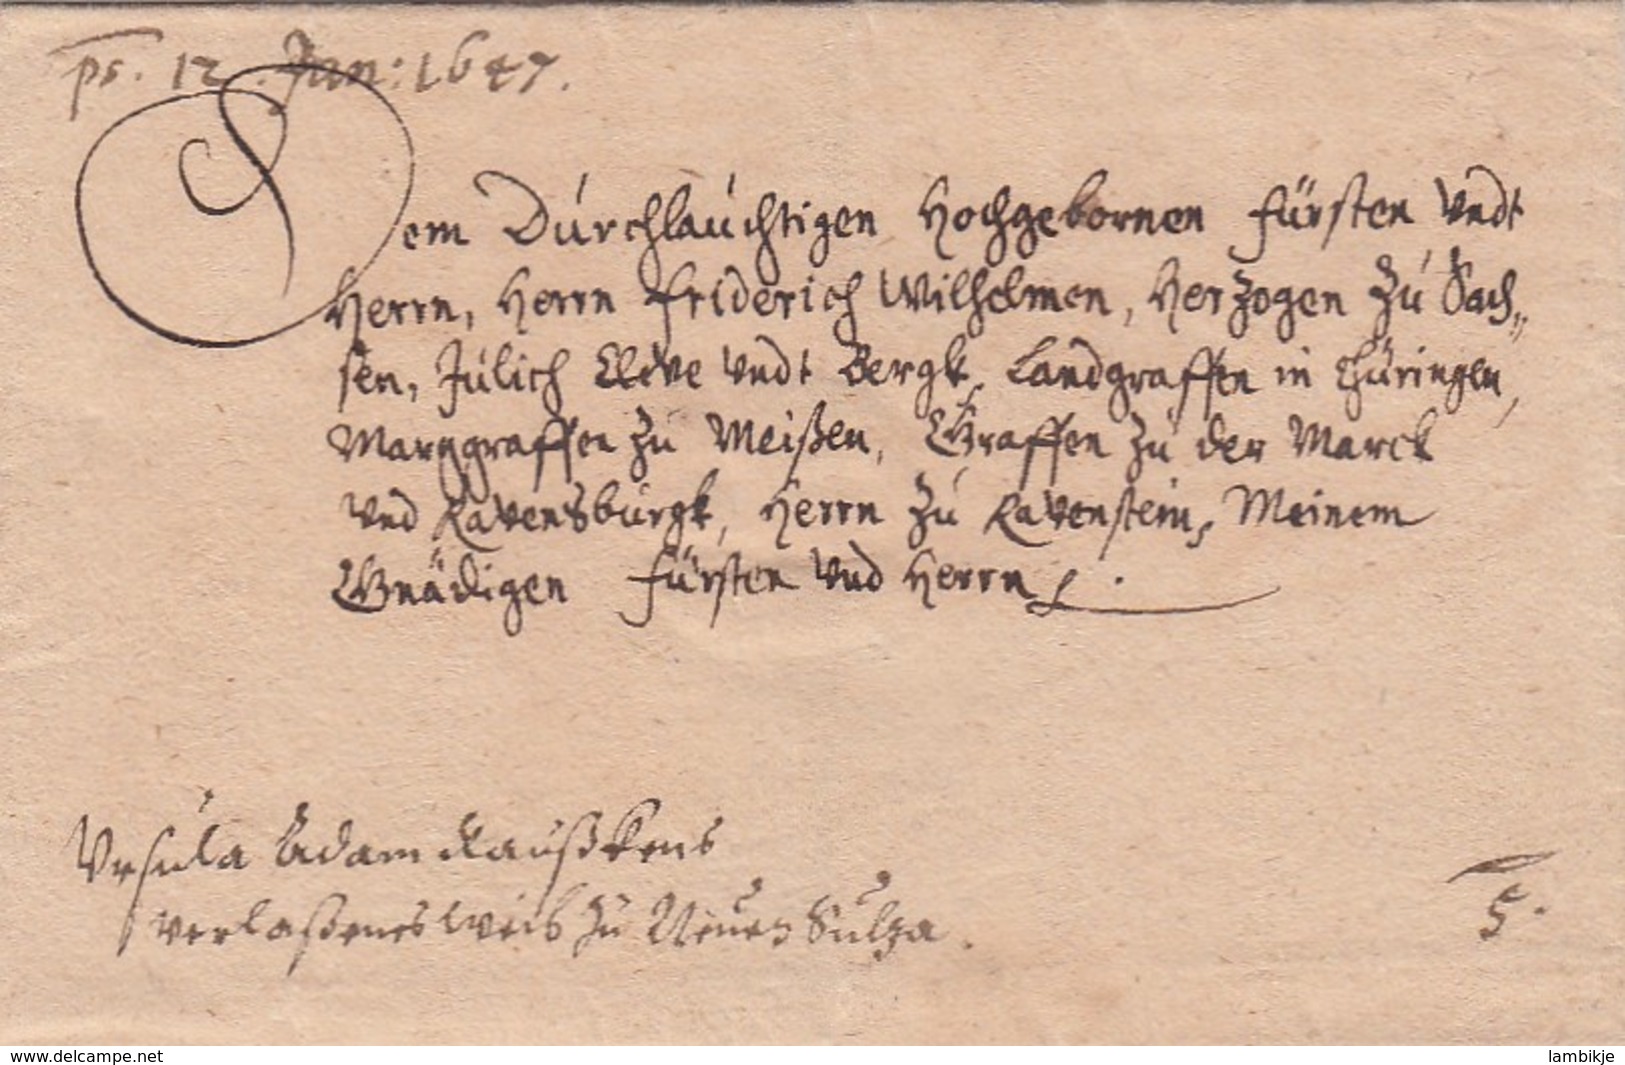 ps. 12. Jan: 1647.
Dem Durchlauchtigen Hochgebornen Fürsten Vndt
Herrn, Herrn Friderich Wilhelmen, Herzogen Zu Sach„
sen, Jülich Cleve vndt Bergk, Landgraffen in Thüringen,
Marggraffen zu Meißen, Graffen zu der Marck
vnd Ravensburgk, Herrn zu Ravenstein, Meinem
Gnädigen Fürsten vnd Herrn
Vrsula Adam
verlaßenes Weib zu Neuen Sulza.
www.delcampe.net
lambikje